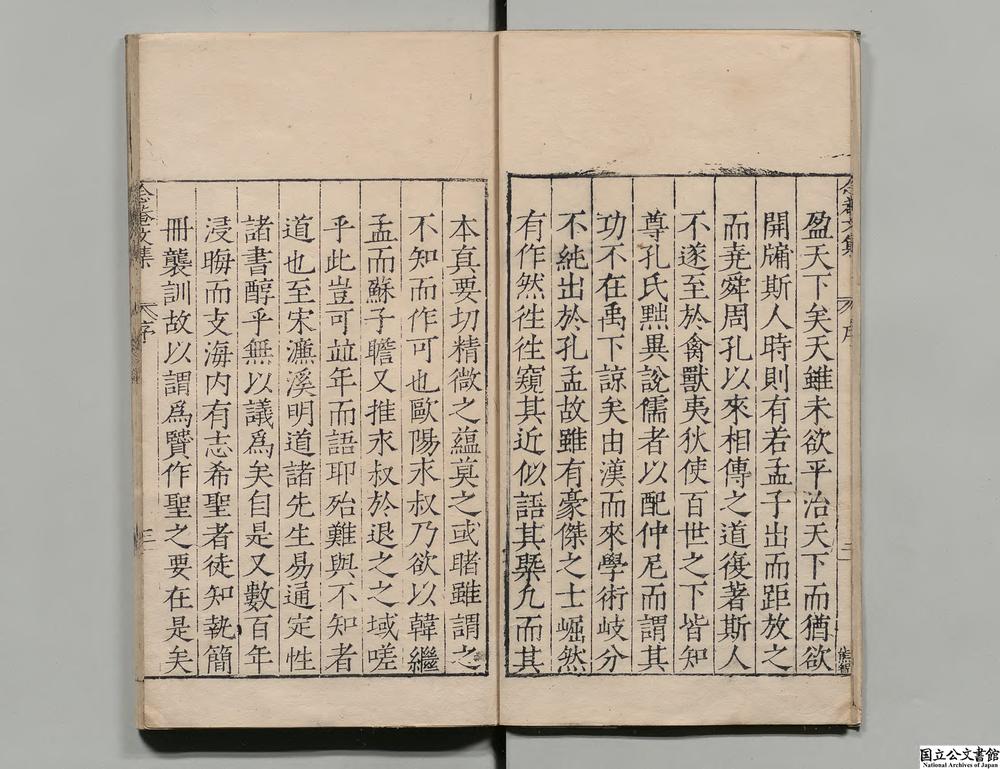 盈天下矣天雖未欲平治天下而猶欲
開牖斯人時則有若孟子出而距放之
而堯舜周孔以來相傳之道復著斯人
不遂至於禽獸夷狄使百世之下皆知
尊孔氏黜異說儒者以配仲尼而謂其
功不在禹下諒矣由漢而來學術岐分
不純出於孔孟故雖有豪傑之士崛然
有作然徃徃窺其近似語其槩九而其
本真要切精微之蘊莫之或睹雖謂之
不知而作可也歐陽永叔乃欲以韓繼
孟而蘇子瞻又推永叔於退之之域嗟
乎此豈可竝年而語耶殆難與不知者
道也至宋濂溪明道諸先生易通定性
諸書醇乎無以議爲矣自是又數百年
浸晦而攴海内有志希聖者徒知執簡
冊襲訓故以謂爲賢作聖之要在是矣
念菴文集
序
三
国立公文書館
National Archives of Japan